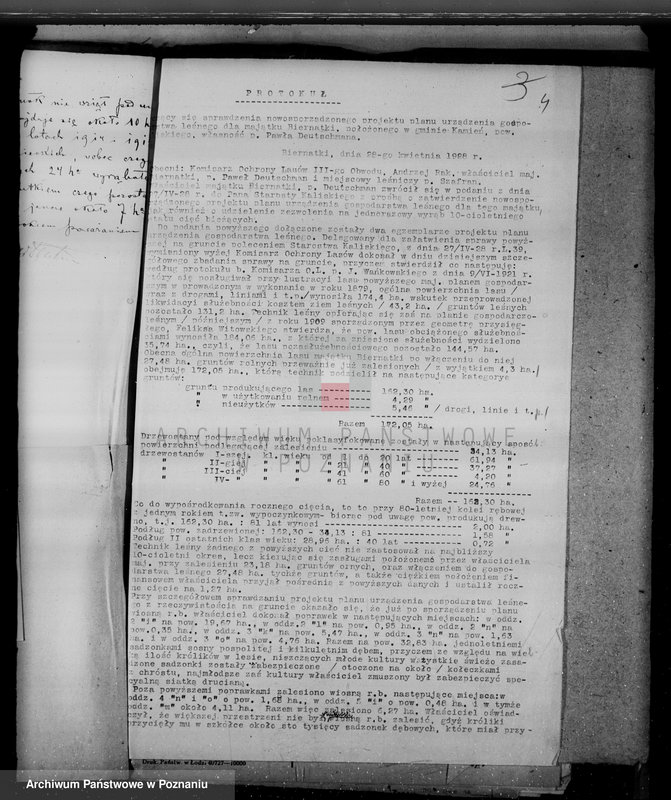 3
4
PROTOKUŁ
sprawdzenia nowosporządzonego projektu planu urządzenia gospo-
leśnego dla majątku Biernatki, położonego w gminie Kamień, pow.
własność p. Pawła Deutschmana.
Biernatki, dnia 28-go kwietnia 1928 r.
Obecni: Komisarz Ochrony Lasów III-go Obwodu, Andrzej Rak, właściciel maj.
Biernatki, p. Paweł Deutschman i miejscowy leśniczy p. Szafran.
właściciel majątku Biernatki, p. Deutschman zwrócił się w podaniu z dnia
/IV-28 r. do Pana Starosty Kaliskiego z prośbą o zatwierdzenie nowospo-
rządzonego projektu planu urządzenia gospodarstwa leśnego dla tego majątku,
jak również o udzielenie zezwolenia na jednorazowy wyrąb 10-cioletniego
cięć bieżących.
Do podania powyższego dołączone zostały dwa egzemplarze projektu planu
urządzenia gospodarstwa leśnego. Delegowany dla załatwienia sprawy powyż-
szej na gruncie poleceniem Starostwa Kaliskiego, z dnia 27/IV-28 r.L.39,
wymieniony wyżej Komisarz Ochrony Lasów dokonał w dniu dzisiejszym szcze-
gółowego zbadania sprawy na gruncie, przyczem stwierdził co następuje:
według protokułu b. Komisarza O.L. p. J. Wańkowskiego z dnia 9/VI-1921 r.
który się posługiwał przy lustracyi lasu powyższego maj. planem gospodar-
czym w prowadzonym w wykonanie w roku 1879, ogólna powierzchnia lasu /
wraz z drogami, liniami i t.p./wynosiła 174,4 ha. wskutek przeprowadzonej
likwidacyi służebności kosztem ziem leśnych / 43,2 ha. / gruntów leśnych
pozostało 131,2 ha. Technik leśny opierając się zaś na planie gospodarczo-
leśnym / późniejszym / z roku 1909 sporządzonym przez geometrę przysię-
głego, Feliksa Witowskiego stwierdza, że pow. lasu obciążonego służebnoś-
ciami wynosiła 184,06 ha., z której na zniesione służebności wydzielono
15,74 ha., czyli, że lasu pozasłużebnościowego pozostało 144,57 ha.
Obecna ogólna powierzchnia lasu majątku Biernatki po włączeniu do niej
27,48 ha. gruntów rolnych przeważnie już zalesionych / z wyjątkiem 4,3 ha./
obejmuje 172,05 ha., którą technik podzielił na następujące kategorye
gruntów:
gruntu produkującego las ---------- 162,30 ha.
" w użytkowaniu rolnem ---------- 4,29 "
" nieużytków ---------- 5,46 " / drogi, linie i t.p./
Razem 172,05 ha.
Drzewostany pod względem wieku poklasyfikowane zostały w następujący sposób:
powierzchni podlegającej zalesieniu ---------- 34,13 ha.
drzewostanów I-szej kl. wieku od 1 do 20 lat -- 61,94 "
" II-giej " " " 21 " 40 " -- 37,27 "
" III-ciej " " " 41 " 60 " -- 4,20 "
" IV- " " " " 61 " 80 " i wyżej 24,76 "
Razem -- 162,30 ha.
Co do wypośrodkowania rocznego cięcia, to to przy 80-letniej kolei rębowej
z jednym rokiem t.zw. wypoczynkowym- biorąc pod uwagę pow. produkują drew-
no, t.j. 162,30 ha. : 81 lat wynosi ---------- 2,00 ha.
Podług pow. zadrzewionej: 162,30 - 34,13 : 81 ---------- 1,58 "
Podług II ostatnich klas wieku: 28,96 ha. : 40 lat ---------- 0,72 "
Technik leśny żadnego z powyższych cięć nie zastosował na najbliższy
10-cioletni okres, lecz kierując się zasługami położonemi przez właściciela
maj. przy zalesieniu 23,18 ha. gruntów ornych, oraz włączeniem do gospo-
darstwa leśnego 27,48 ha. tychże gruntów, a także ciężkim położeniem fi-
nansowem właściciela przyjął pośrednie z powyższych danych i ustalił rocz-
ne cięcie na 1,27 ha.
Przy szczegółowem sprawdzaniu projektu planu urządzenia gospodarstwa leśne-
go z rzeczywistością na gruncie okazało się, że już po sporządzeniu planu
wiosną r.b. właściciel dokonał poprawek w następujących miejscach: w oddz.
2 "i" w pow. 19,67 ha., w oddz.2 "l" na pow. 0,95 ha., w oddz. 2 "n" na
pow.0,35 ha., w oddz. 3 "k" na pow. 5,47 ha., w oddz. 3 "n" na pow. 1,63
ha. i w oddz. 3 "o" na pow. 4,76 ha. Razem na pow. 32,63 ha. jednoletniemi
sadzonkami sosny pospolitej i kilkuletnim dębem, przyczem ze względu na wiel-
ką ilość królików w lesie, niszczących młode kultury wszystkie świeżo zasa-
dzone sadzonki zostały zabezpieczone / otoczone na około / kołeczkami
z chróstu, najmłodsze zaś kultury właściciel zmuszony był zabezpieczyć spe-
cyalną siatką drucianą.
Poza powyższemi poprawkami zalesiono wiosną r.b. następujące miejsca:w
oddz. 4 "n" i "o" o pow. 1,68 ha., w oddz. 5 "i" o pow. 0,48 ha. i w tymże
oddz. "m" około 4,11 ha. Razem więc zalesiono 6,27 ha. Właściciel oświad-
czył, że większej przestrzeni nie był wiosną r.b. zalesić, gdyż króliki
przycięły mu w szkółce około sto tysięcy sadzonek dębowych, które miał przy-
Druk. Państw. w Łodzi 40/727—10000
ARCHIWUM PAŃSTWOWE
W POZNANIU
Archiwum Państwowe w Poznaniu